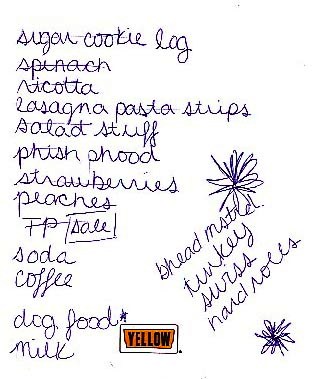 sugar cookie log
spinach
ricotta
lasagna pasta strips
salad stuff
phish phood
strawberries
peaches
TP sale
soda
coffee
dog food*
milk
bhead mstrd.
turkey
swiss
hard rolls
YELLOW